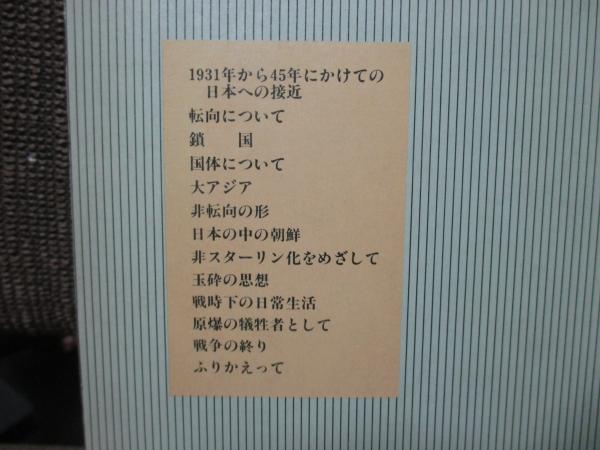 1931年から45年にかけての
日本への接近
転向について
鎖　国
国体について
大アジア
非転向の形
日本の中の朝鮮
非スターリン化をめざして
玉砕の思想
戦時下の日常生活
原爆の犠牲者として
戦争の終り
ふりかえって